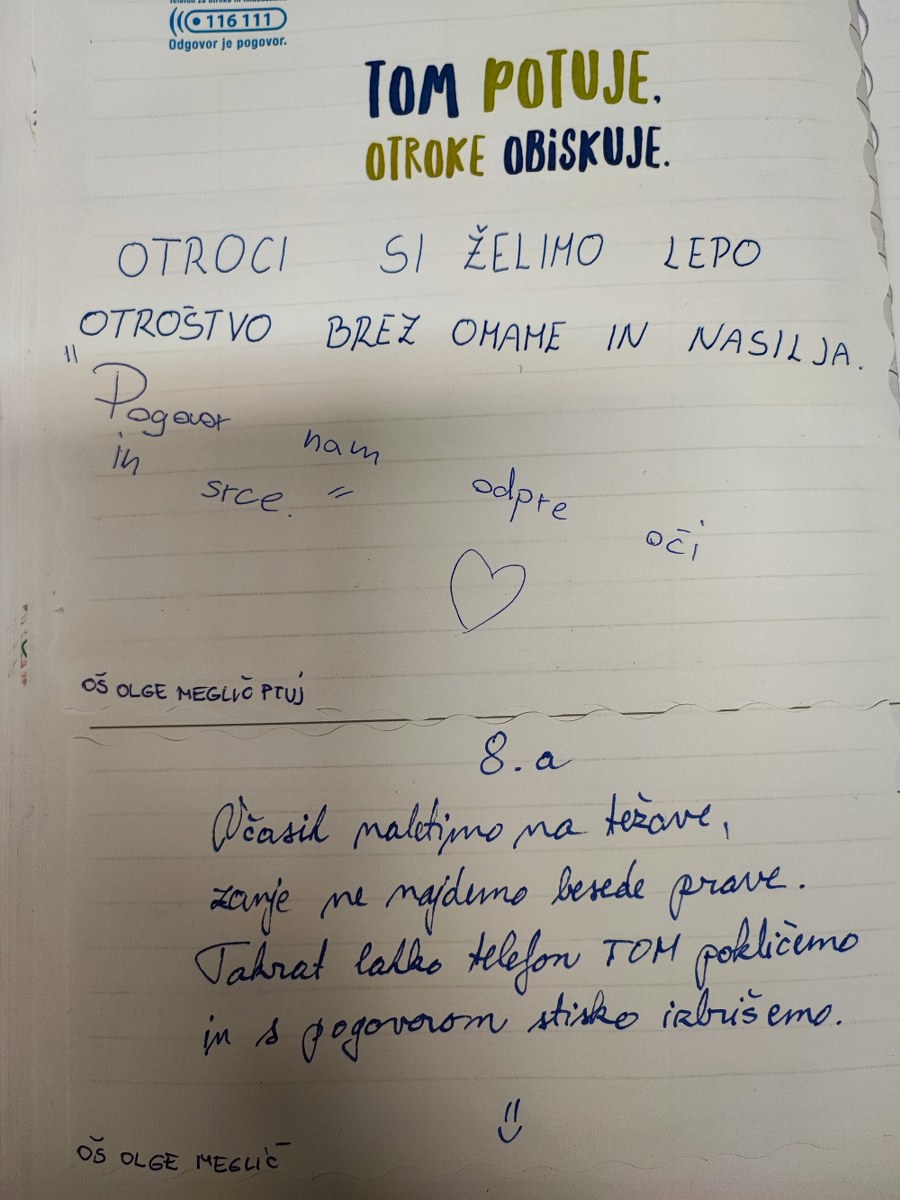 116 111
Odgovor je pogovor.
TOM POTUJE.
OTROKE OBISKUJE.
OTROCI SI ŽELIMO LEPO
OTROŠTVO BREZ OMAME IN NASILJA.
"Pogovor nam odpre oči
in srce."
OŠ OLGE MEGLIČ PTUJ
8. a
Včasih naletimo na težave,
zanje ne najdemo besede prave.
Takrat lahko telefon TOM pokličemo
in s pogovorom stisko izbrišemo.
OŠ OLGE MEGLIČ